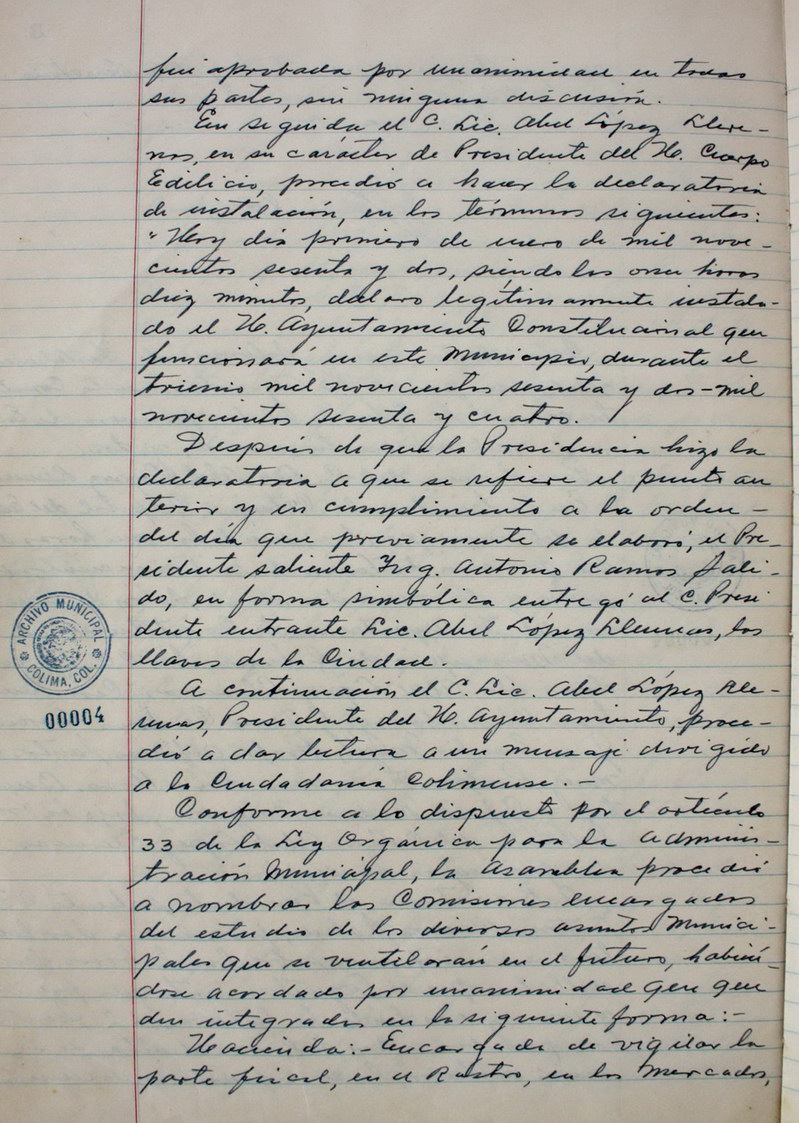 fué aprobada por unanimidad en todas
sus partes, sin ninguna discusión.
En seguida el C. Lic. Abel López Llere-
nas, en su carácter de Presidente del H. Cuerpo
Edilicio, procedió a hacer la declaratoria
de instalación, en los términos siguientes:
"Hoy día primero de enero de mil nove-
cientos sesenta y dos, siendo las once horas
diez minutos, declaro legítimamente instala-
do el H. Ayuntamiento Constitucional que
funcionará en este Municipio, durante el
trienio mil novecientos sesenta y dos-mil
novecientos sesenta y cuatro.
Después de que la Presidencia hizo la
declaratoria a que se refiere el punto an
terior y en cumplimiento a la orden-
del día que previamente se elaboró, el Pre-
sidente saliente Ing. Antonio Ramos Sali-
do, en forma simbólica entregó al C. Presi
dente entrante Lic. Abel López Llerenas, las
llaves de la Ciudad.
A continuación el C. Lic. Abel López Lle-
renas, Presidente del H. Ayuntamiento, proce-
dió a dar lectura a un mensaje dirigido
a la Ciudadanía Colimense.-
Conforme a lo dispuesto por el artículo
33 de la Ley Orgánica para la Adminis-
tración Municipal, la Asamblea procedió
a nombrar las Comisiones encargadas
del estudio de los diversos asuntos Munici-
pales que se ventilarán en el futuro, habién-
dose acordado por unanimidad que que
den integradas en la siguiente forma:-
Hacienda:- Encargada de vigilar la
parte fiscal, en el Rastro, en los Mercados,
ARCHIVO MUNICIPAL
COLIMA, COL.
00004